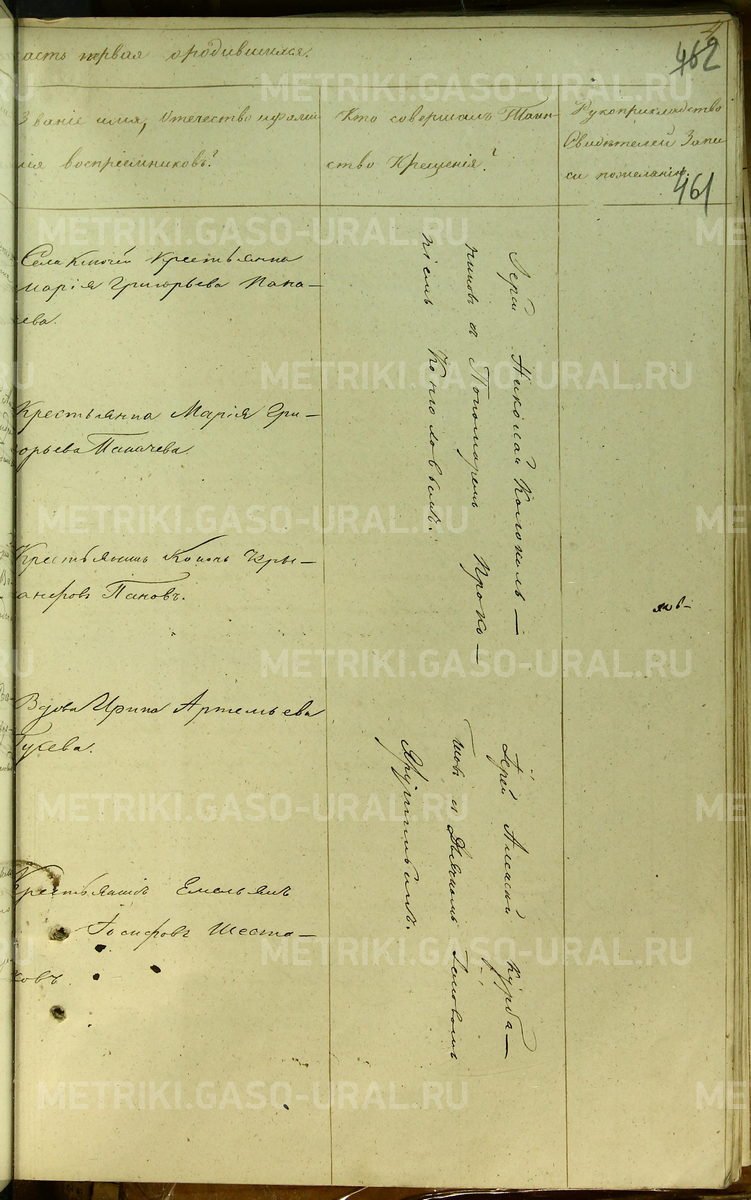 462
461
асть первая ородившихся.
Званіе имя, Отечество ифами
лія воспріемниковъ?
Кто совершалъ Таин-
ство Крещенія?
Рукоприкладство
Свидѣтелей Запи
си пожеланію.
Села Ключей Крестьянка
Марія Григорьева Пана-
ева.
Крестьянка Марія Гри-
орьева Паначева.
Крестьянинъ
Пановъ.
Вдова Ирина Артемьева
Гусева.
Крестьянинъ Емельянъ
Іосифовъ Шеста-
ковъ.
Іерей Николай Колоколь-
никовъ съ Пономаремъ Проко-
піемъ
Іерей Алексѣй Курба-
товъ съ Дьячкомъ
METRIKI.GASO-URAL.RU